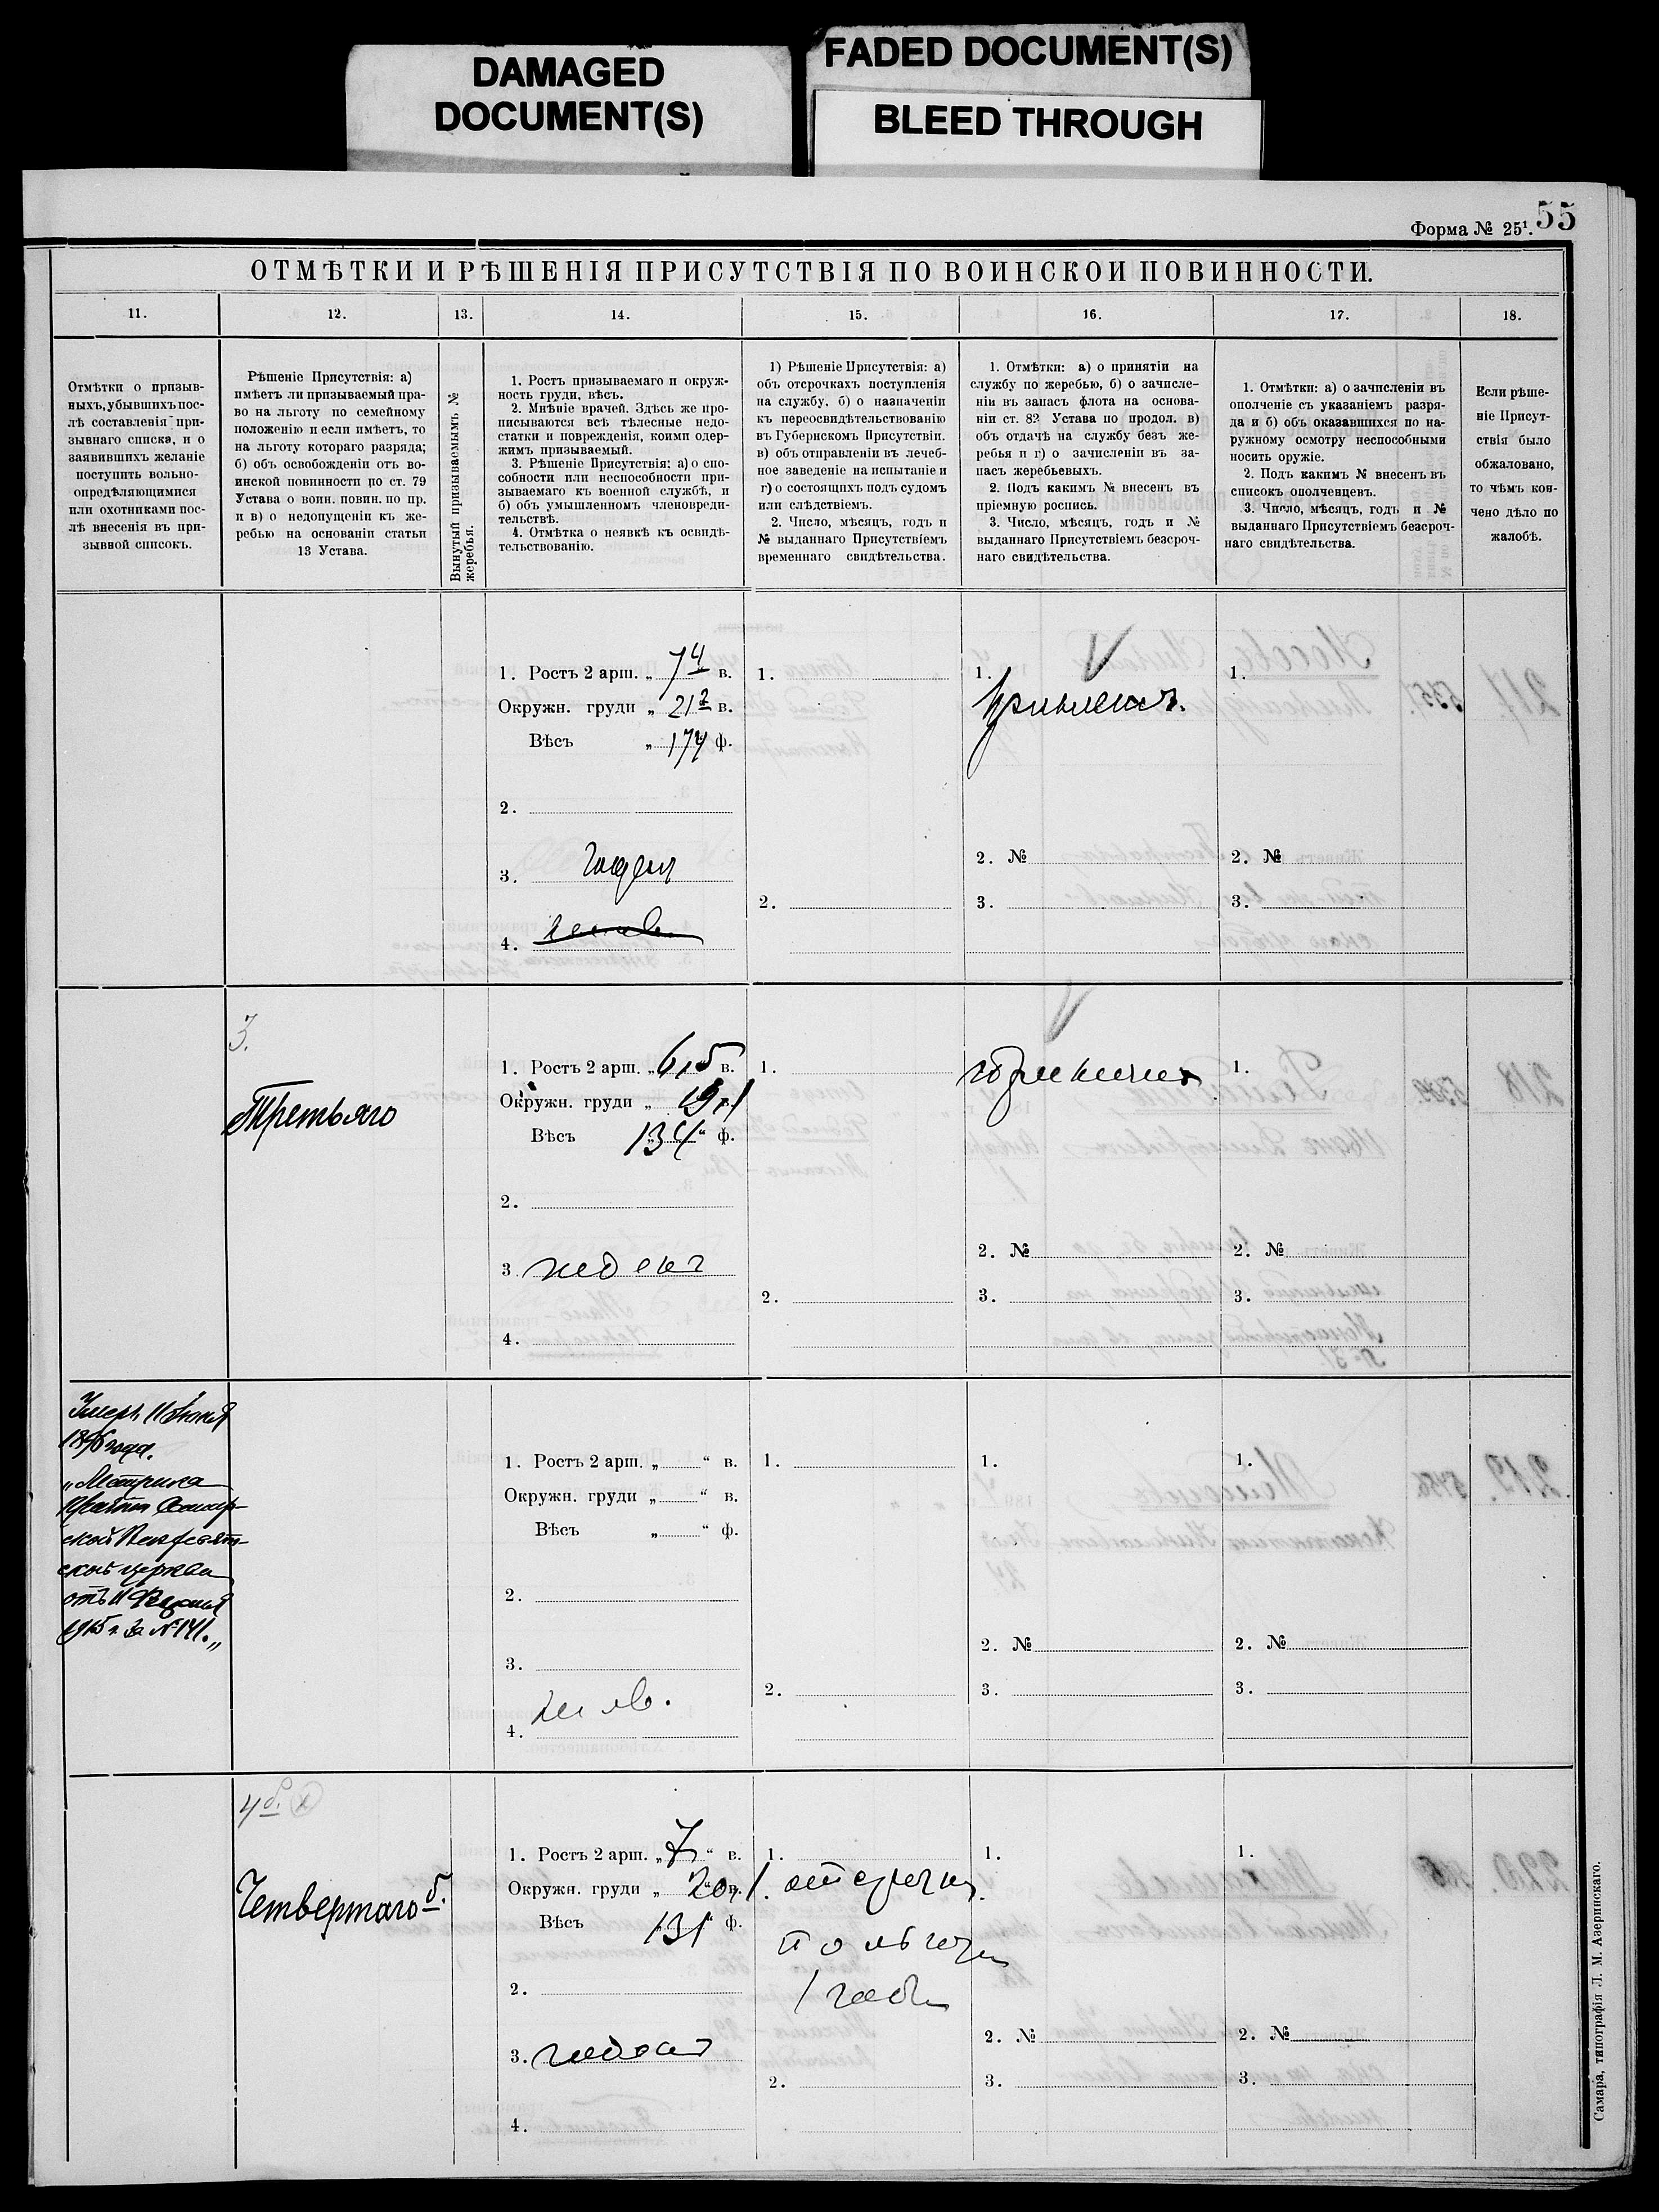 DAMAGED
DOCUMENT(S)
FADED DOCUMENT(S)
BLEED THROUGH
Форма № 25¹.
55
ОТМѢТКИ И РѢШЕНІЯ ПРИСУТСТВІЯ ПО ВОИНСКОИ ПОВИННОСТИ.
11. 12. 13. 14. 15. 16. 17. 18.
Отмѣтки о призыв-
ныхъ, убывшихъ пос-
лѣ составленія при-
зывнаго списка, и о
заявившихъ желаніе
поступить вольно-
опредѣляющимися
или охотниками пос-
лѣ внесенія въ при-
зывной списокъ.
Рѣшеніе Присутствія: а)
имѣетъ ли призываемый пра-
во на льготу по семейному
положенію и если имѣетъ, то
на льготу котораго разряда;
б) объ освобожденіи отъ во-
инской повинности по ст. 79
Устава о воин. повин. по пр.
и в) о недопущеніи къ же-
ребью на основаніи статьи
13 Устава.
Вынутый призываемымъ №
жеребья.
1. Ростъ призываемаго и окруж-
ность груди, вѣсъ.
2. Мнѣніе врачей. Здѣсь же про-
писываются всѣ тѣлесные недо-
статки и поврежденія, коими одер-
жимъ призываемый.
3. Рѣшеніе Присутствія: а) о спо-
собности или неспособности при-
зываемаго къ военной службѣ, и
б) объ умышленномъ членовреди-
тельствѣ.
4. Отмѣтка о неявкѣ къ освидѣ-
тельствованію.
1) Рѣшеніе Присутствія: а)
объ отсрочкахъ поступленія
на службу, б) о назначеніи
къ переосвидѣтельствованію
въ Губернскомъ Присутствіи.
в) объ отправленіи въ лечеб-
ное заведеніе на испытаніе и
г) о состоящихъ подъ судомъ
или слѣдствіемъ.
2. Число, мѣсяцъ, годъ и
№ выданнаго Присутствіемъ
временнаго свидѣтельства.
1. Отмѣтки: а) о принятіи на
службу по жеребью, б) о зачисле-
ніи въ запасъ флота на основа-
ніи ст. 82 Устава по продол. в)
объ отдачѣ на службу безъ же-
ребья и г) о зачисленіи въ за-
пасъ жеребьевыхъ.
2. Подъ какимъ № внесенъ въ
пріемную роспись.
3. Число, мѣсяцъ, годъ и №
выданнаго Присутствіемъ безсроч-
наго свидѣтельства.
1. Отмѣтки: а) о зачисленіи въ
ополченіе съ указаніемъ разря-
да и б) объ оказавшихся по на-
ружному осмотру неспособными
носить оружіе.
2. Подъ какимъ № внесенъ въ
списокъ ополченцевъ.
3. Число, мѣсяцъ, годъ и №
выданнаго Присутствіемъ безсроч-
наго свидѣтельства.
Если рѣше-
ніе Присут-
ствія было
обжаловано,
то чѣмъ кон-
чено дѣло по
жалобѣ.
1. Ростъ 2 арш. „ 7 4 в. 1. 1. 1.
Окружн. груди „ 21 2 в. Принятъ.
Вѣсъ „ 174 ф.
2.
2. № 2. №
3. Годенъ
2. 3. 3.
4. неяв.
3.
1. Ростъ 2 арш. „ 6,5 в. 1. 1.
принятъ
Третьяго
Окружн. груди „ 19,1
Вѣсъ 134 “ ф.
2.
2. № 2. №
3 годенъ
2. 3. 3.
4.
Умеръ 11 Іюня
1896 года.
„Метрика
церкви
отъ 11
1915 г. За № 141.„
1. Ростъ 2 арш. „ “ в. 1. 1. 1.
Окружн. груди „ “ в.
Вѣсъ „ “ ф.
2.
2. № 2. №
3.
2. 3. 3.
4. не яв.
4 б.
Четвертаго б.
1. Ростъ 2 арш. „ 7 “ в. 1. 1. 1.
Окружн. груди „ 20,1. отсрочка
Вѣсъ 131 “ ф.
2.
2. № 2. №
3. годенъ
2. 3. 3.
4.
Самара, типографія Л. М. Азеринскаго.